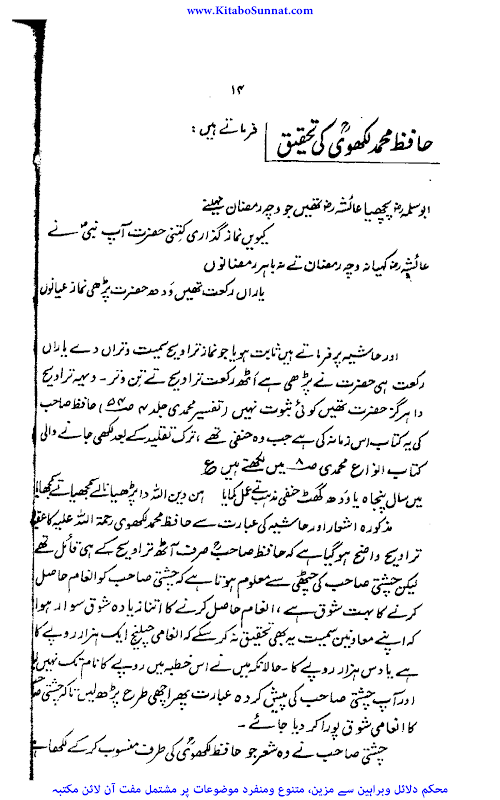 www.KitaboSunnat.com
۱۴
حافظ محمد لکھویؒ کی تحقیق فرماتے ہیں:
ابوسلمہ رض پچھیا عائشہ رض تھیں جو وچہ رمضان مہینے
کیویں نماز گذاری کتنی حضرت آپ نبیؐ نے
عائشہ رض کہیا نہ وچہ رمضان تے نہ باہر رمضانوں
یاراں رکعت تھیں ودھ حضرت پڑھی نماز عیانوں
اور حاشیہ پر فرماتے ہیں ثابت ہویا جو نماز تراویح سمیت وتراں دے یاراں
رکعت ہی حضرت نے پڑھی ہے اٹھ رکعت تراویح تے تن وتر۔ ویہہ تراویح
دا ہرگز حضرت تھیں کوئی ثبوت نہیں (تفسیر محمدی جلد ۴ ص۵۴) حافظ صاحب
کی یہ کتاب اس زمانہ کی ہے جب وہ حنفی تھے، ترک تقلید کے بعد لکھی جانے والی
کتاب انواع محمدی ص۸ میں لکھتے ہیں ع
میں سال پنجاہ یا ودھ گھٹ حنفی مذہب تے عمل کمایا ہن دین اللہ دا پڑھیا نالے سمجھیا تے سمجھایا
مذکورہ اشعار اور حاشیہ کی عبارت سے حافظ محمد لکھوی رحمۃ اللہ علیہ کا
تراویح واضح ہو گیا ہے کہ حافظ صاحبؒ صرف آٹھ تراویح کے ہی قائل تھے
لیکن چشتی صاحب کی چٹھی سے معلوم ہوتا ہے کہ چشتی صاحب کو انعام حاصل
کرنے کا بہت شوق ہے، انعام حاصل کرنے کا اتنا زیادہ شوق سوار ہوا
کہ اپنے معاونین سمیت یہ بھی تحقیق نہ کر سکے کہ انعامی چیلنج ایک ہزار روپے کا
ہے یا دس ہزار روپے کا۔ حالانکہ میں نے اس خطبہ میں روپے کا نام تک نہیں لیا
اور آپ چشتی صاحب کی پیش کردہ عبارت پھر اچھی طرح پڑھ لیں تاکہ چشتی
کا انعامی شوق پورا کر دیا جائے۔
چشتی صاحب نے وہ شعر جو حافظ لکھویؒ کی طرف منسوب کر کے لکھا ہے
محکم دلائل وبراہین سے مزین، متنوع ومنفرد موضوعات پر مشتمل مفت آن لائن مکتبہ